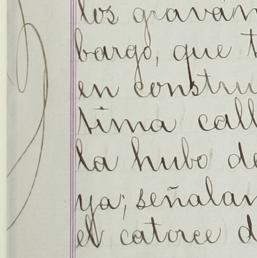 los graván
bargo, que t
en constru
tima call
la hubo de
ya; señalan
el catorce d